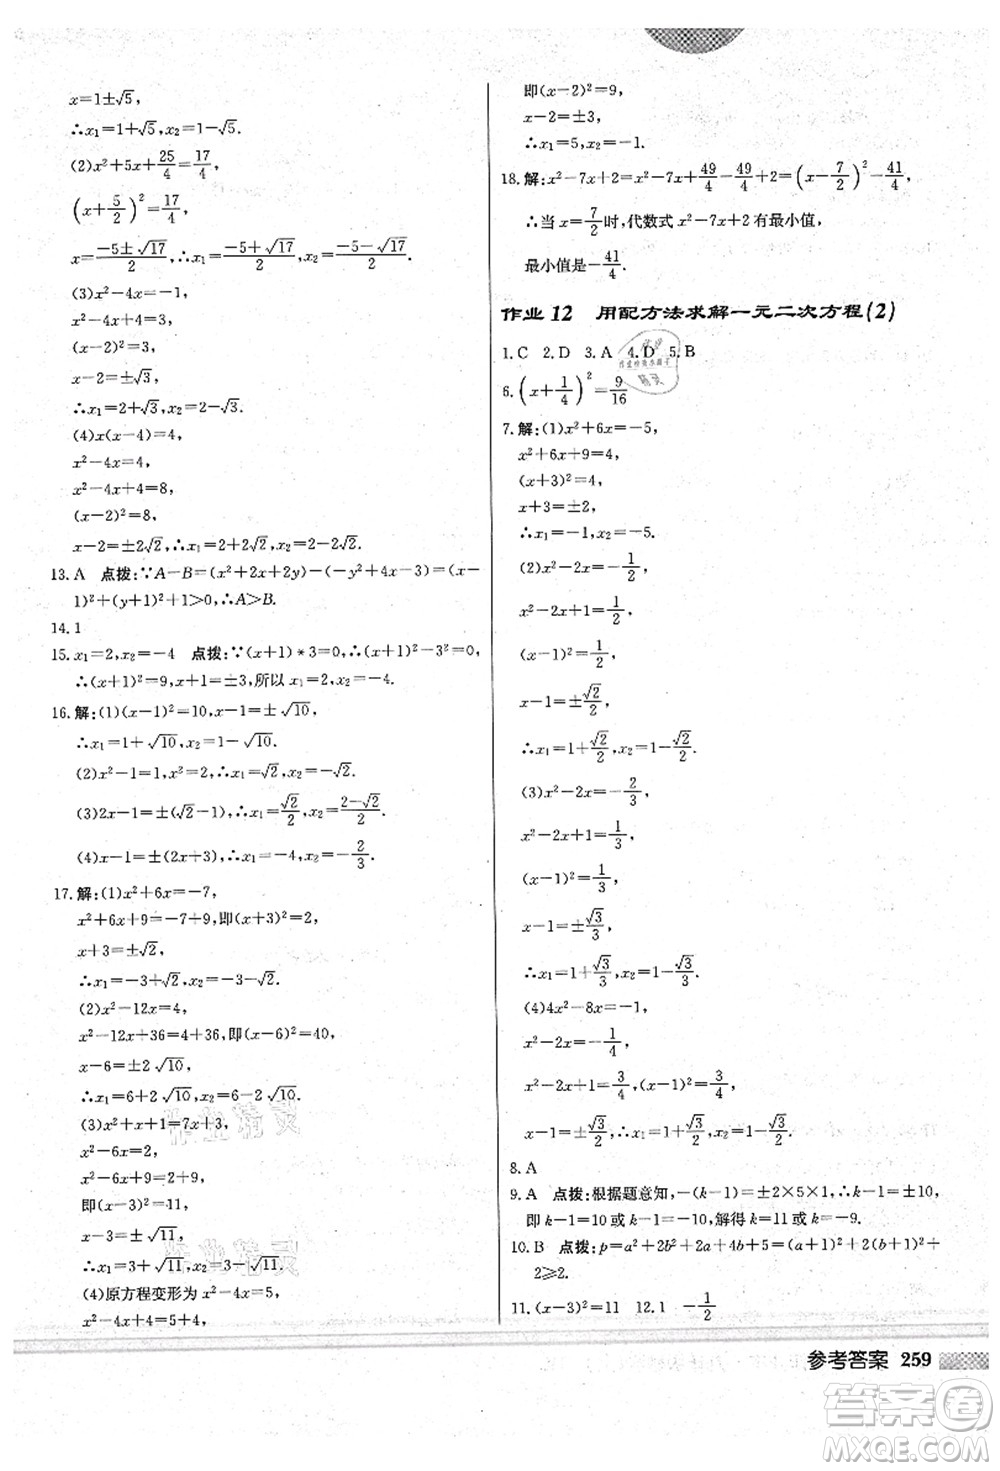 x=1±√5,
∴x₁=1+√5,x₂=1-√5.
(2)x²+5x+25/4=17/4,
(x+5/2)²=17/4,
x=(-5±√17)/2,∴x₁=(-5+√17)/2,x₂=(-5-√17)/2.
(3)x²-4x=-1,
x²-4x+4=3,
(x-2)²=3,
x-2=±√3,
∴x₁=2+√3,x₂=2-√3.
(4)x(x-4)=4,
x²-4x=4,
x²-4x+4=8,
(x-2)²=8,
x-2=±2√2,∴x₁=2+2√2,x₂=2-2√2.
13.A 点拨:∵A-B=(x²+2x+2y)-(-y²+4x-3)=(x-
1)²+(y+1)²+1>0,∴A>B.
14.1
15.x₁=2,x₂=-4 点拨:∵(x+1)*3=0,∴(x+1)²-3²=0,
∴(x+1)²=9,x+1=±3,所以x₁=2,x₂=-4.
16.解:(1)(x-1)²=10,x-1=±√10,
∴x₁=1+√10,x₂=1-√10.
(2)x²-1=1,x²=2,∴x₁=√2,x₂=-√2.
(3)2x-1=±(√2-1),∴x₁=√2/2,x₂=(2-√2)/2.
(4)x-1=±(2x+3),∴x₁=-4,x₂=-2/3.
17.解:(1)x²+6x=-7,
x²+6x+9=-7+9,即(x+3)²=2,
x+3=±√2,
∴x₁=-3+√2,x₂=-3-√2.
(2)x²-12x=4,
x²-12x+36=4+36,即(x-6)²=40,
x-6=±2√10,
∴x₁=6+2√10,x₂=6-2√10.
(3)x²+x+1=7x+3,
x²-6x=2,
x²-6x+9=2+9,
即(x-3)²=11,
x-3=±√11,
∴x₁=3+√11,x₂=3-√11.
(4)原方程变形为x²-4x=5,
x²-4x+4=5+4,
即(x-2)²=9,
x-2=±3,
∴x₁=5,x₂=-1.
18.解:x²-7x+2=x²-7x+49/4-49/4+2=(x-7/2)²-41/4,
∴当x=7/2时,代数式x²-7x+2有最小值,
最小值是-41/4.
作业12 用配方法求解一元二次方程(2)
1.C 2.D 3.A 4.D 5.B
6.(x+1/4)²=9/16
7.解:(1)x²+6x=-5,
x²+6x+9=4,
(x+3)²=4,
x+3=±2,
∴x₁=-1,x₂=-5.
(2)x²-2x=-1/2,
x²-2x+1=1/2,
(x-1)²=1/2,
x-1=±√2/2,
∴x₁=1+√2/2,x₂=1-√2/2.
(3)x²-2x=-2/3,
x²-2x+1=1/3,
(x-1)²=1/3,
x-1=±√3/3,
∴x₁=1+√3/3,x₂=1-√3/3.
(4)4x²-8x=-1,
x²-2x=-1/4,
x²-2x+1=3/4,即(x-1)²=3/4,
x-1=±√3/2,∴x₁=1+√3/2,x₂=1-√3/2.
8.A
9.A 点拨:根据题意知,-(k-1)=±2×5×1,∴1-k=±10,
即k-1=10或k-1=-10,解得k=11或k=-9.
10.B 点拨:p=a²+2b²+2a+4b+5=(a+1)²+2(b+1)²+
2⩾2.
11.(x-3)²=11 12.1 -1/2
参考答案 259
答案圈
MXQE.COM